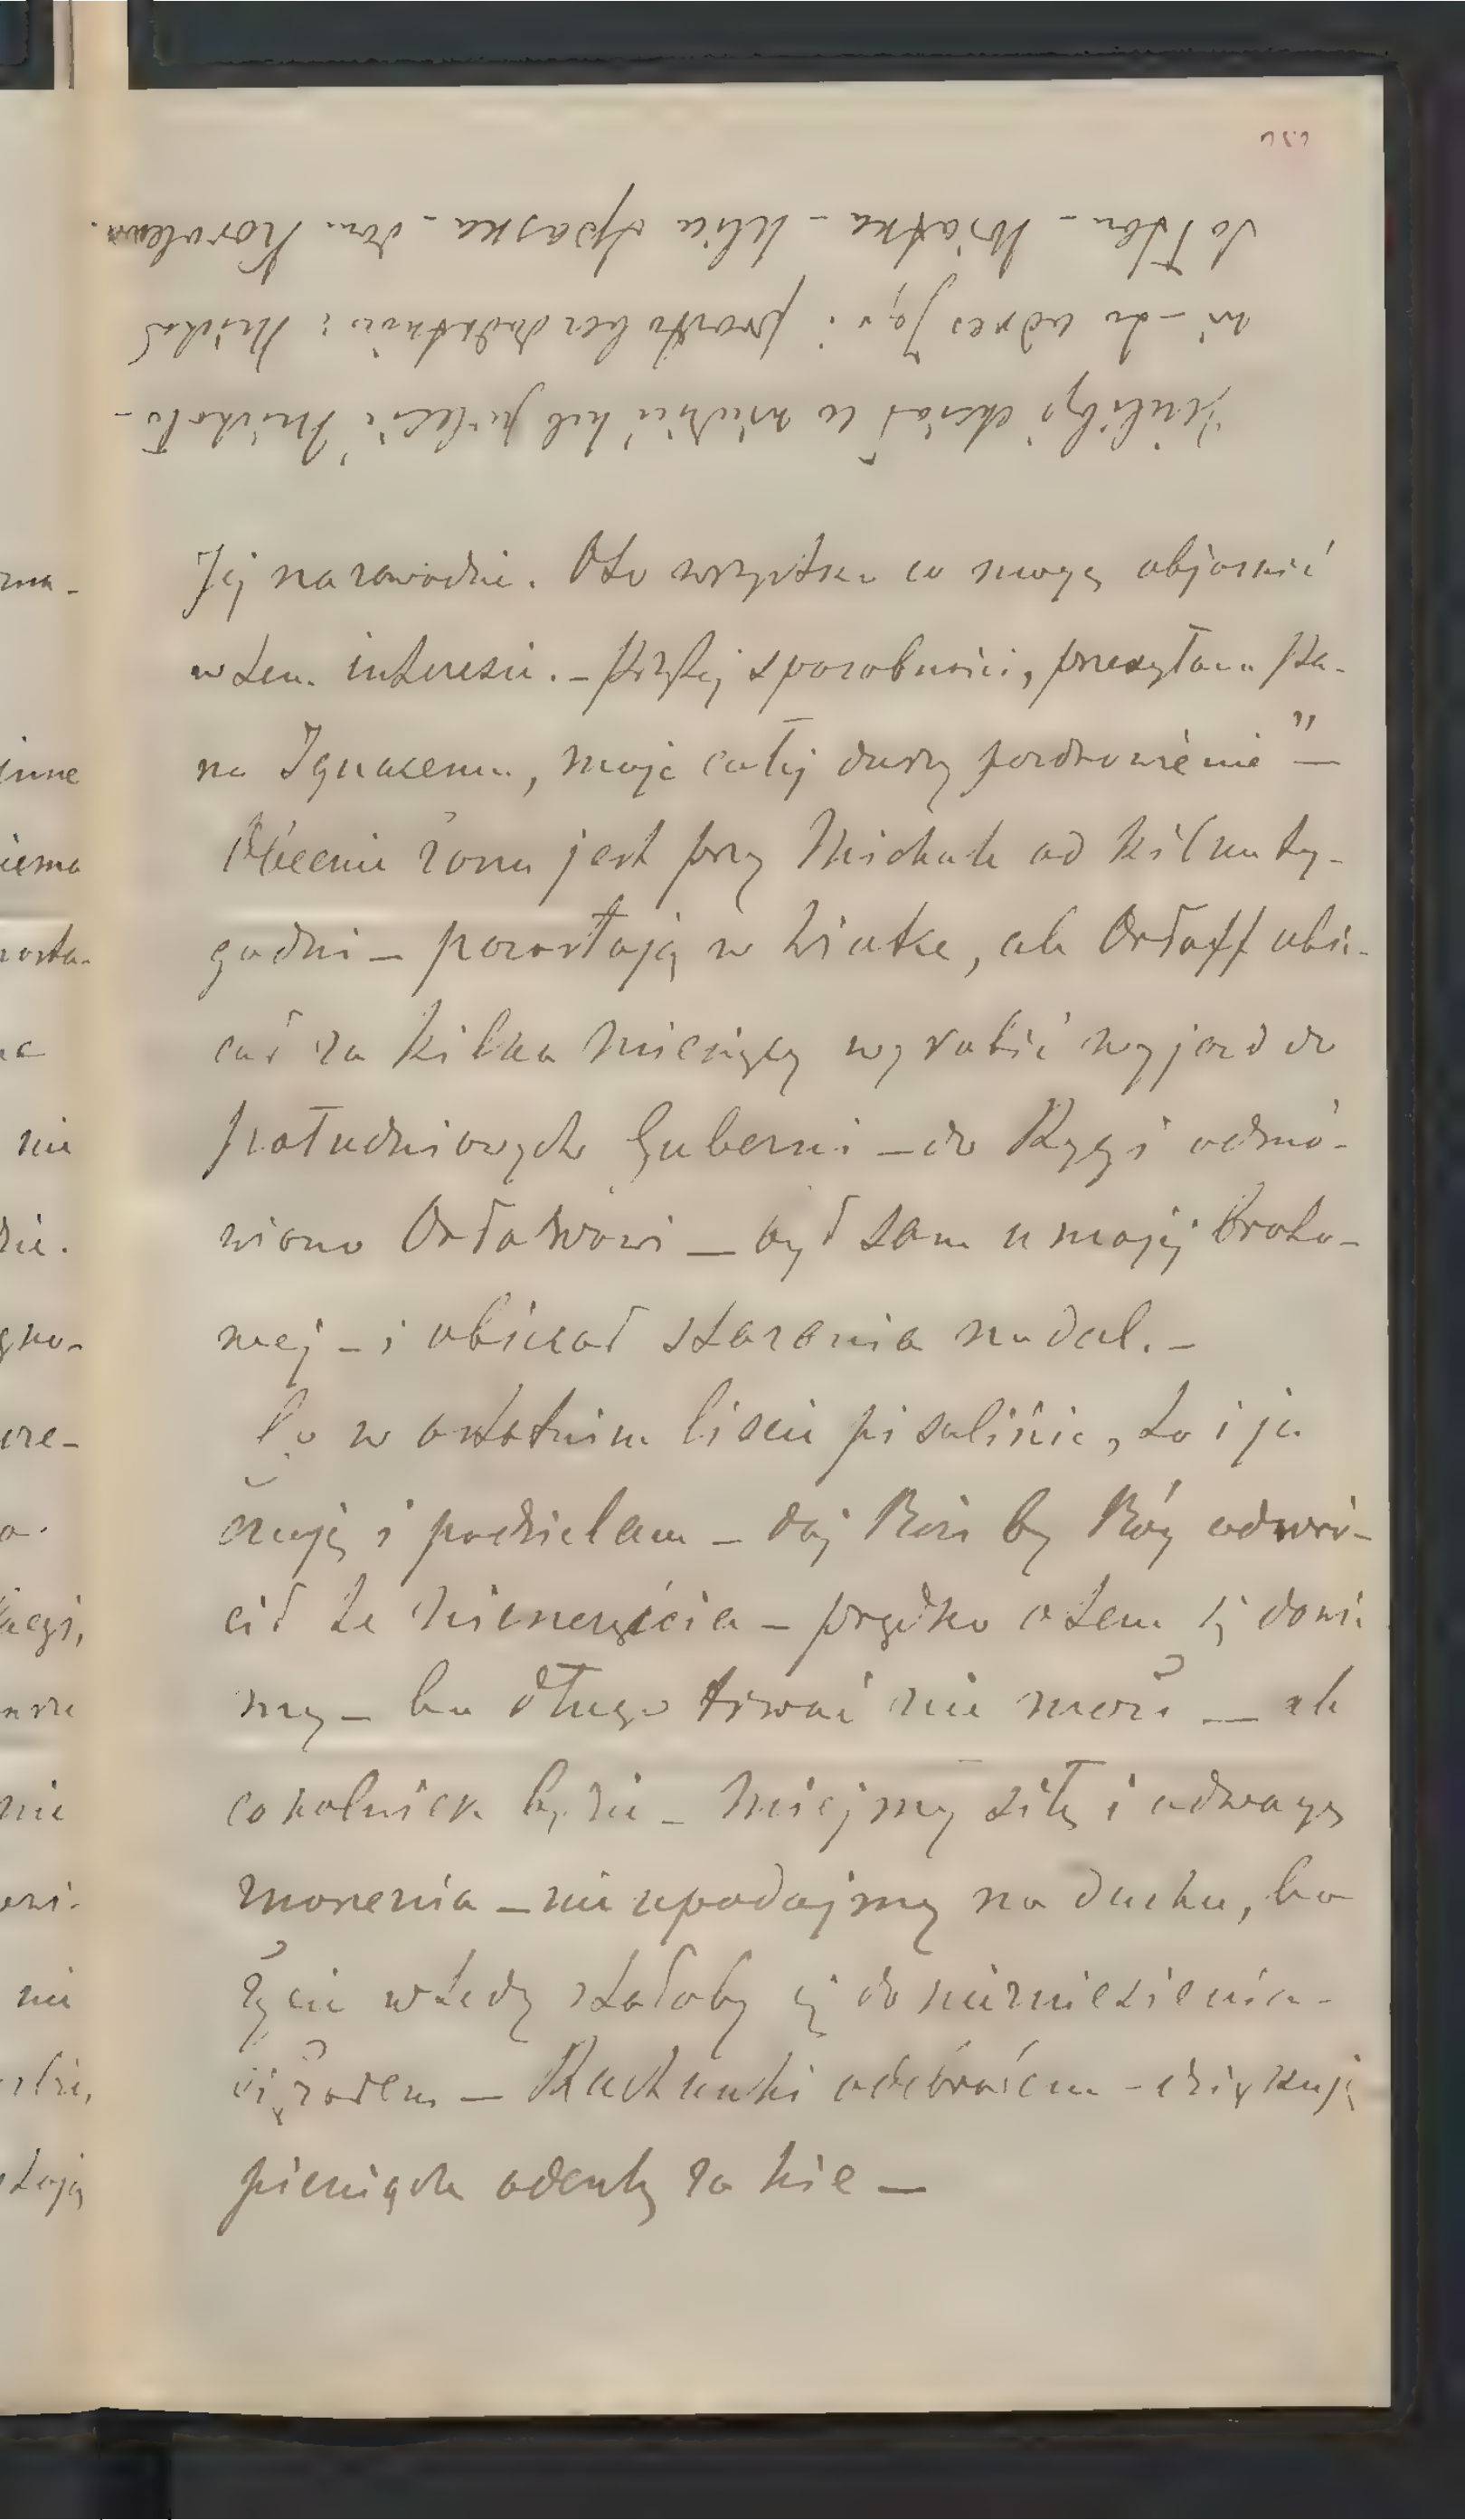 Jeślibyś chciał co wiedzieć lub polecić Michało-
wi – to adres Jego i prosto bez dodatków: Michał
Sołtan – Wiatka – Ulica Spaska – dom Korolewa.
Jej na zawodzie. Oto wszystko co mogę objaśnić
w tem interesie. – Przy tej sposobności, przesyłam Pa-
nu Ignacemu, moje całej duszy pozdrowienie" –
Obecnie żona jest przy Michale od kilku ty-
godni – pozostają w Wiatce, ale Orłoff obie-
cał za kilka miesięcy wyrobić wyjazd do
południowych Gubernii – do Rygi odmó-
wiono Orłowowi – był sam u mojej Brato-
wej – i obiecał starania nadal. –
Co w ostatnim liście pisaliście, to i ja
czuję i podzielam – daj Boże by Bóg odwró-
cił te nieszczęścia – prędko o tem się dowie
my – bo długo trwać nie może – ale
cokolwiek będzie – miejmy siłę i odwagę
znoszenia – nie upadajmy na duchu, bo
życie wtedy stałoby się do niezniesienia
ciężarem – Rachunki odebrałem – dziękuję
pieniądze odeszlę za nie –
rna-
inne
iema
zosta-
nie
zie.
gno-
ore-
nie
ni
stają